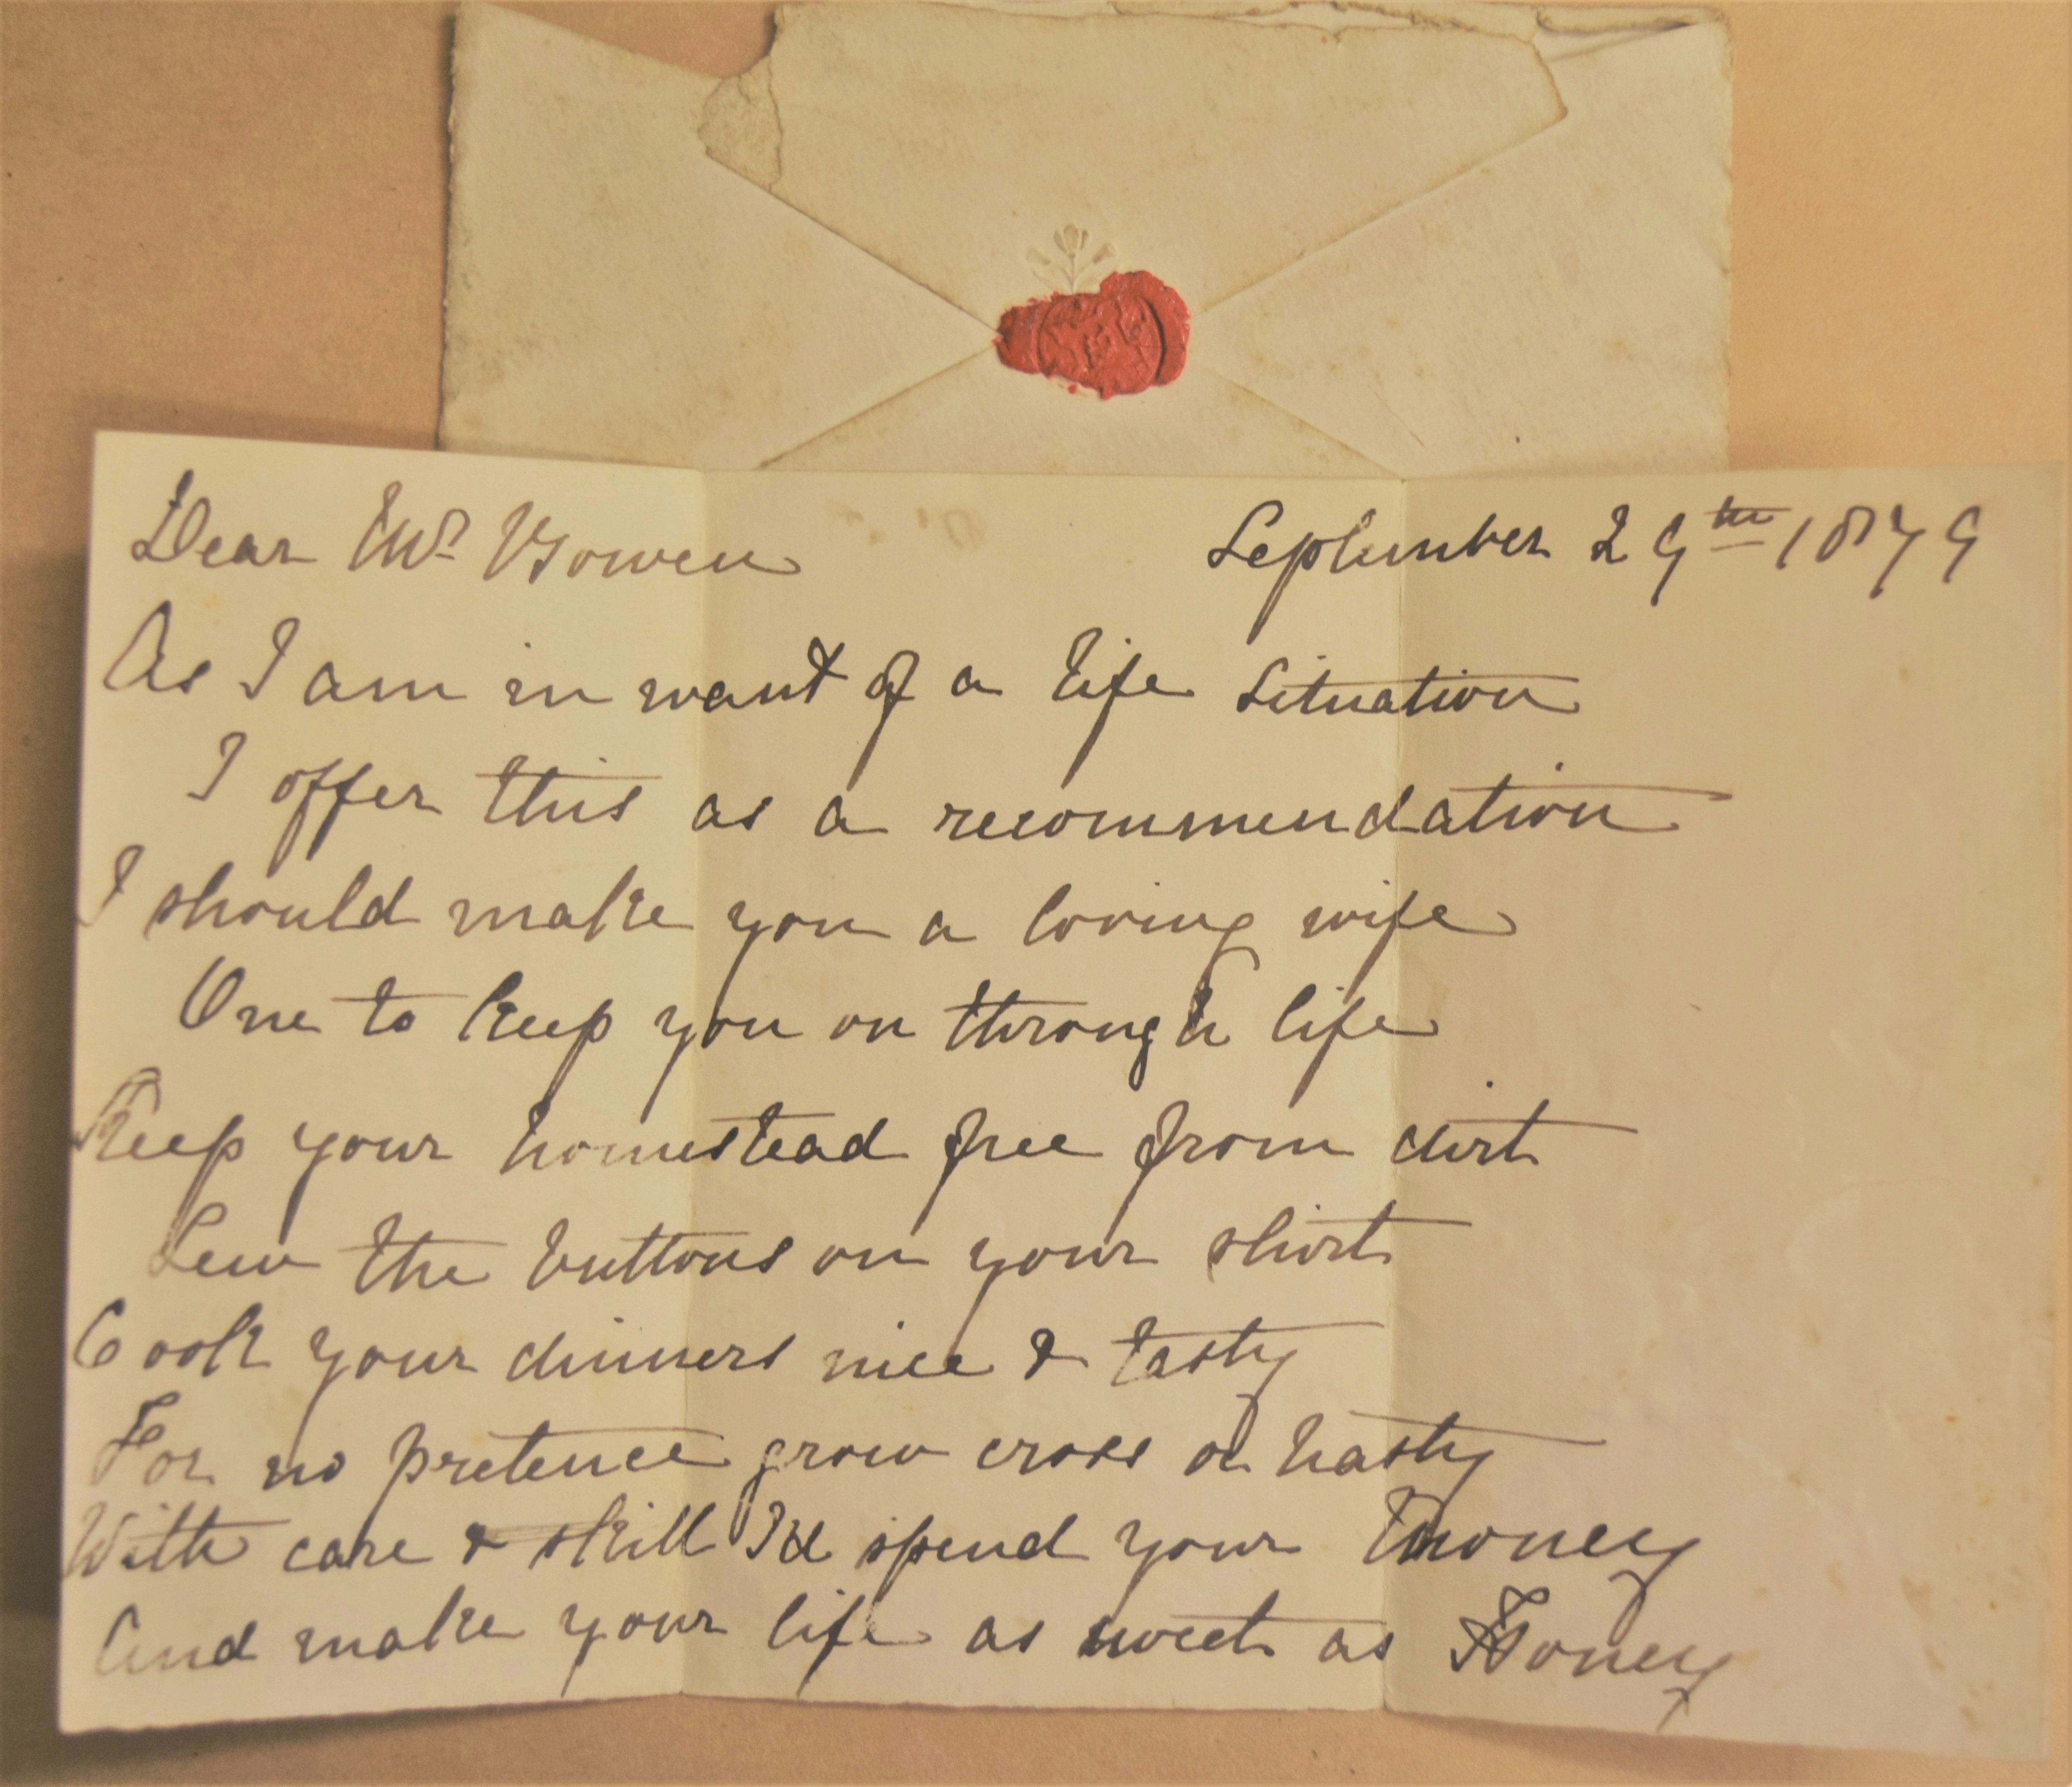 Dear Mr Bowen September 29th 1879
As I am in want of a life Situation
I offer this as a recommendation
I should make you a loving wife
One to keep you on through life
Keep your homestead free from dirt
Sew the buttons on your shirt
Cook your dinners nice & tasty
For no pretence grow cross or hasty
With care & skill I'd spend your Money
And make your life as sweet as Honey